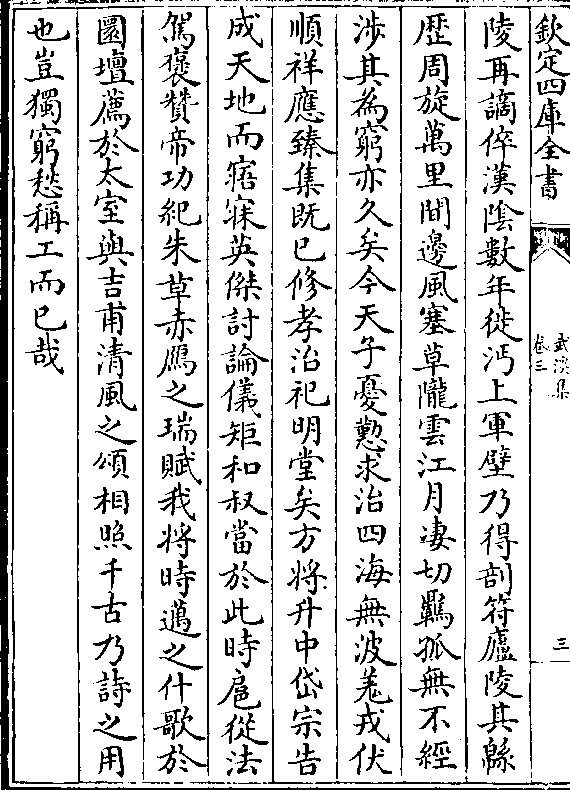 欽定四庫全書
武溪集
卷三
三
陵再謫倅漢陰數年徙沔上軍壁乃得剖符廬陵其緜
歴周旋萬里間邊風塞草隴雲江月凄切羈孤無不經
渉其為窮亦久矣今天子憂懃求治四海無波羗戎伏
順祥應臻集既已修孝治祀明堂矣方將升中岱宗告
成天地而寤寐英傑討論儀矩和叔當於此時扈從法
駕褒贊帝功紀朱草赤鴈之瑞賦我將時邁之什歌於
圜壇薦於太室與吉甫清風之頌相照千古乃詩之用
也豈獨窮愁稱工而已哉